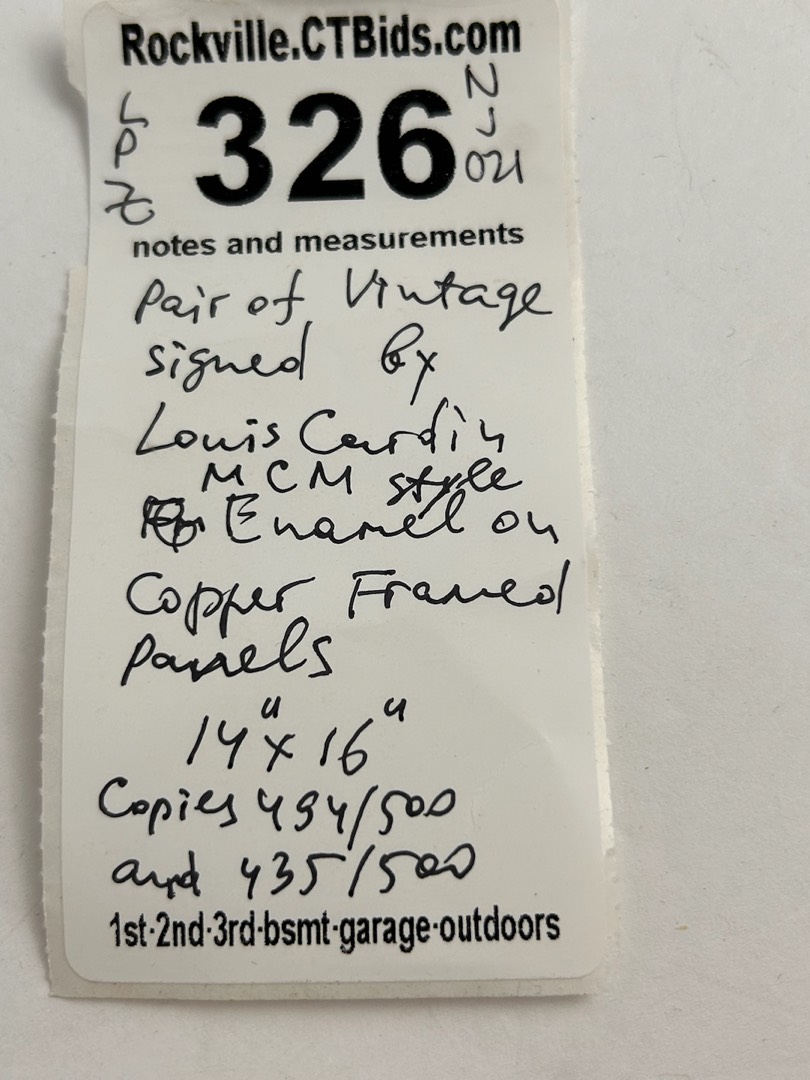 Rockville.CTBids.com
L
P
Z
326
N
J
021
notes and measurements
Pair of Vintage
signed by
Louis Cardin
MCM style
Enamel on
Copper Framed
Panels
14" x 16"
Copies 494/500
and 435/500
1st·2nd·3rd·bsmt·garage·outdoors